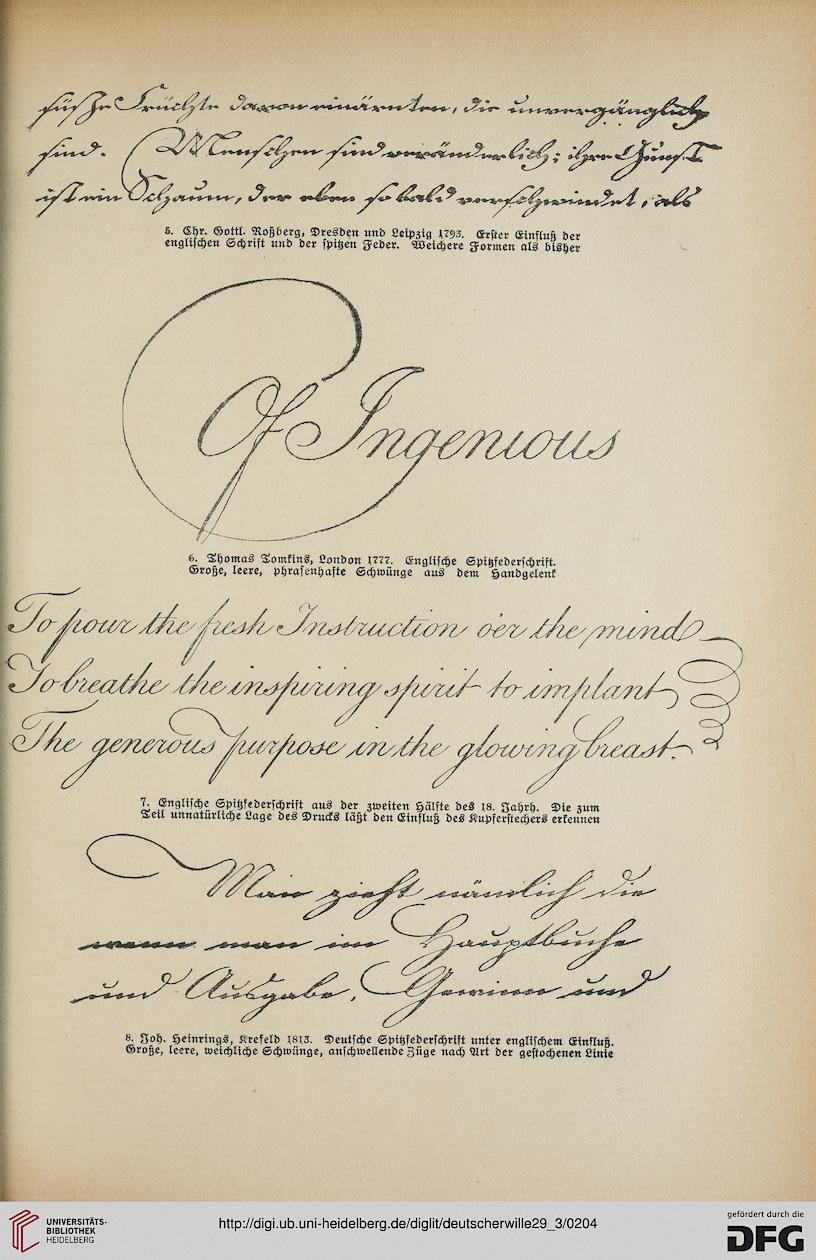 süsse Früchte davon einärnten, die unvergänglich
sind. Menschen sind veränderlich; ihre Gunst
ist ein Schaum, der eben so bald verschwindet, als
5. Chr. Gottl. Roßberg, Dresden und Leipzig 1793. Erster Einfluß der
englischen Schrift und der spitzen Feder. Weichere Formen als bisher
Of Ingenious
6. Thomas Tomkins, London 1777. Englische Spitzfederschrift.
Große, leere, phrasenhafte Schwünge aus dem Handgelenk
To pour the fresh Instruction o'er the mind
To breathe the inspiring spirit to implant
The generous purpose in the glowing breast.
7. Englische Spitzfederschrift aus der zweiten Hälfte des 18. Jahrh. Die zum
Teil unnatürliche Lage des Drucks läßt den Einfluß des Kupferstechers erkennen
Man zieht nämlich die
wenn man im Hauptbuche
und Ausgabe, Gewinn und
8. Joh. Heinrings, Krefeld 1813. Deutsche Spitzfederschrift unter englischem Einfluß.
Große, leere, weichliche Schwünge, anschwellende Züge nach Art der gestochenen Linie
UNIVERSITÄTS-
BIBLIOTHEK
HEIDELBERG
http://digi.ub.uni-heidelberg.de/diglit/deutscherwille29_3/0204
gefördert durch die
DFG